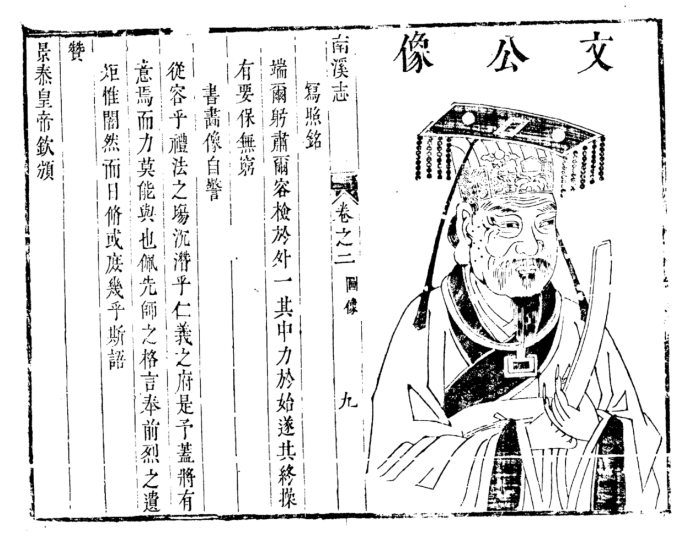 文公像
南溪志 卷之二 圖像 九
寫照銘
端爾躬肅爾容檢於外一其中力於始遂其終操
有要保無窮
書畫像自警
從容乎禮法之場沉潛乎仁義之府是予蓋將有
意焉而力莫能與也佩先師之格言奉前烈之遺
矩惟闇然而日脩或庶幾乎斯語
贊
景泰皇帝欽頒